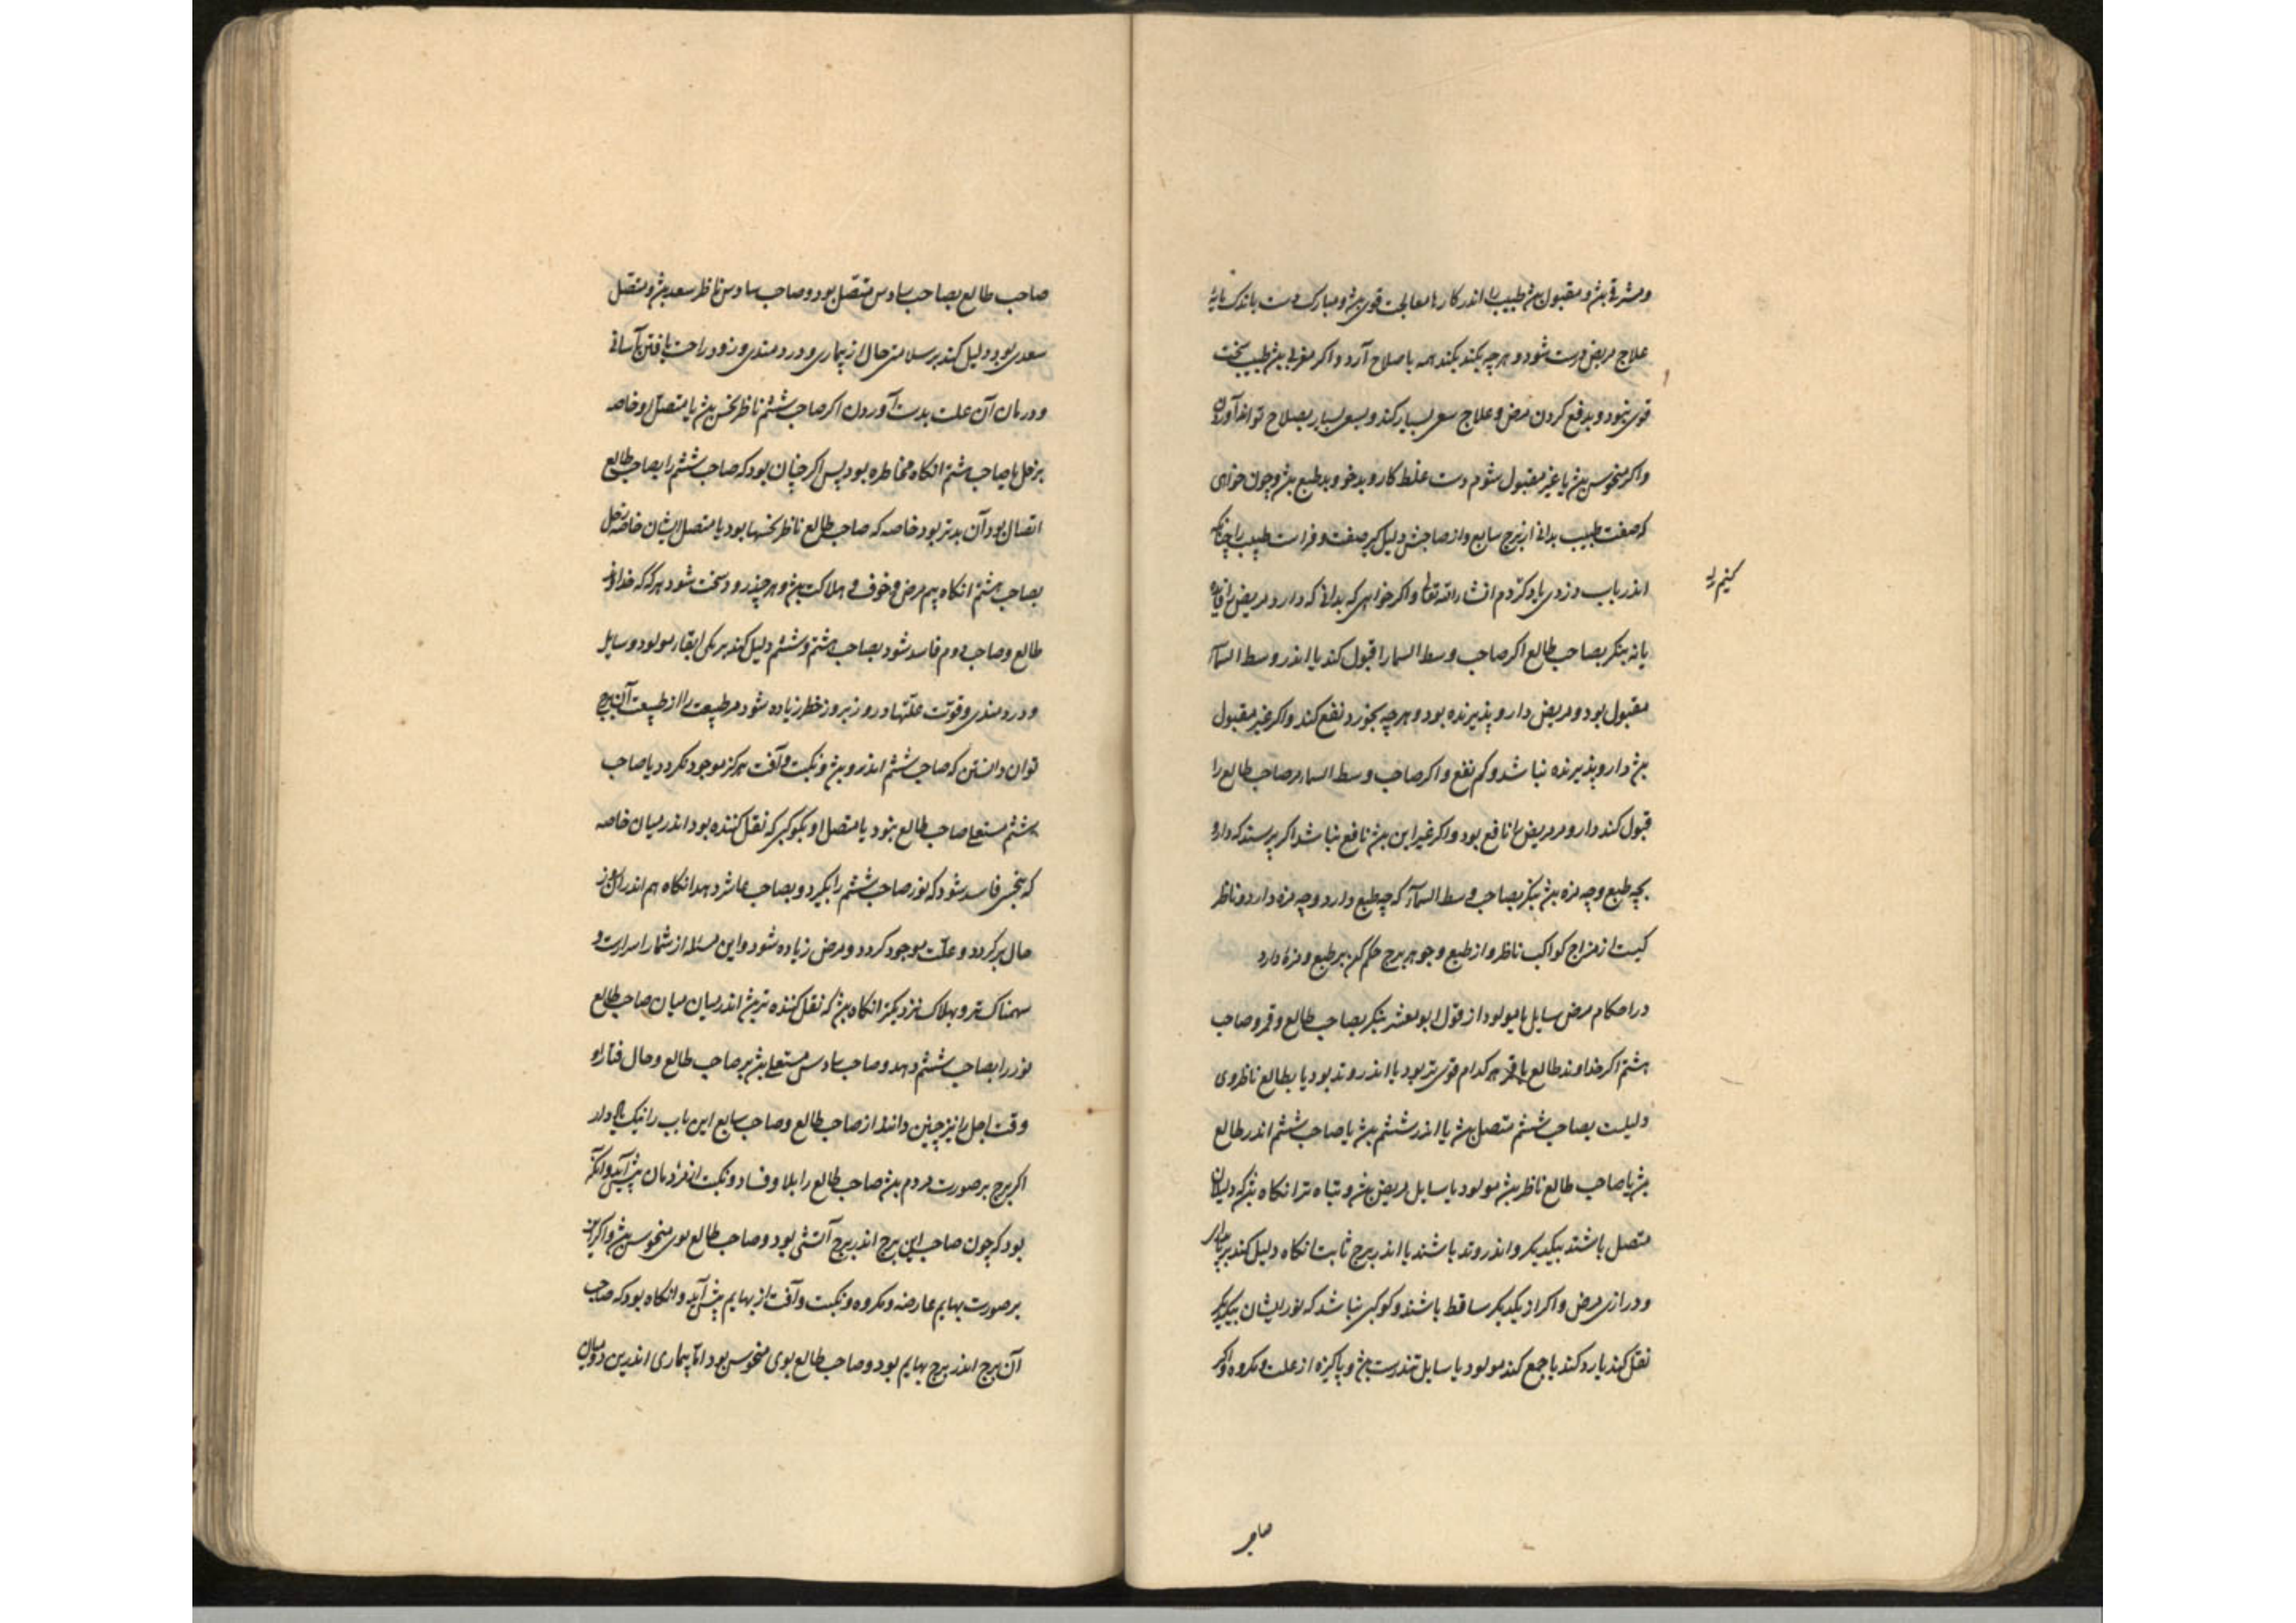 ومشرقی بود ومقبول بود طبیب را اندر کارها معالجت قوی بود ومبارک دست باندک مایه
علاج مریض درست شود و هر چه بکند همه باصلاح آرد واکر مغربی بود طبیب سخت
قوی نبود وبدفع کردن مرض وعلاج سعی بسیار کند وبسعی بسیار بصلاح تواند آوردن
واکر منحوس بود یا غیر مقبول شوم دست غلط کار وبدخو وبدطبع بود وچون خواهی
که صفت طبیب بدانی از برج سابع واز صاحبش دلیل کیر صفت و فراست طبیب را چنانکه
اندر باب دزدی یاد کردم انشاء الله تعالی واکر خواهی که بدانی که دارو مریض را
یا نه بنکر بصاحب طالع اکر صاحب وسط السما را قبول کند یا اندر وسط السمآء
مقبول بود ومریض دارو پذیرنده بود وهر چه بخورد نفع کند واکر غیر مقبول
بود دارو پذیرنده نباشد وکم نفع واکر صاحب وسط السماء مر صاحب طالع را
قبول کند دارو مر مریض را نافع بود واکر غیر این بود نافع نباشد اکر پرسند که دارو
بچه طبع وچه مزه بود بنکر بصاحب وسط السمآء که چه طبع دارد وچه مزه دارد وناظر
کیست از مزاج کواکب ناظر واز طبع وجوهر برج حکم کن بر طبع ومزه دارو
در احکام مرض سایل یا مولود از قول ابو معشر بنکر بصاحب طالع وقمر وصاحب
هشتم اکر خداوند طالع یا قمر هر کدام قوی تر بود یا اندر وتد بود یا بطالع ناظر وی
دلیلست بصاحب ششم متصل بود یا اندر ششم بود یا صاحب ششم اندر طالع
بود یا صاحب طالع ناظر بود مولود یا سایل مریض بود وتباه تر انکاه بود که دلیلان
متصل باشند بیکدیکر واندر وتد باشند یا اندر برج ثابت انکاه دلیل کند بر
ودرازی مرض واکر از یکدیکر ساقط باشند وکوکبی نباشد که نور ایشان بیکدیکر
نقل کند یا رد کند یا جمع کند مولود یا سایل تندرست بود وپاکیزه از علت ومکروه واکر
صاحب
صاحب طالع بصاحب سادس متصل بود وصاحب سادس ناظر سعد بود ومتصل
سعدی بود دلیل کند بر سلامتی حال از بیماری ودردمندی وزود راحت یافتن بآسانی
ودرمان آن علت بدست آوردن اکر صاحب ششم ناظر نحس بود یا متصل او خاصه
بزحل یا صاحب هشتم انکاه مخاطره بود پس اکر چنان بود که صاحب ششم را بصاحب طالع
اتصال بود آن بدتر بود خاصه که صاحب طالع ناظر نحسها بود یا متصل ایشان خاصه زحل
بصاحب هشتم انکاه بیم مرض وخوف وهلاکت بود وهر چند رود سخت شود هر که که خداوند
طالع وصاحب دوم فاسد شود بصاحب هشتم وششم دلیل کند بر مولود وسایل
ودردمندی وقوت علتها وروز بروز خطر زیاده شود مر طبیعت را از طبیعت آن برج
توان دانستن که صاحب ششم اندرو بود ونکبت وآفت هرکز موجود نکردد یا صاحب
ششم مستعلی صاحب طالع نبود یا متصل او بکوکبی که نقل کننده بود اندر میان خاصه
که بنحس فاسد شود که نور صاحب ششم را بکیرد وبصاحب عاشر دهد انکاه هم اندر آن روز
حال برکردد وعلت موجود کردد ومرض زیاده شود واین مسئله از شمار اسرارست و
سهمناک تر وبهلاک نزدیکتر انکاه بود که نقل کننده تر بود اندر میان میان صاحب طالع
نور را بصاحب ششم دهد وصاحب سادس مستعلی بود بر صاحب طالع وحال فنا را و
وقت اجل را نیز چنین دانند از صاحب طالع وصاحب سابع این باب را نیک
اکر برج بر صورت مردم بود صاحب طالع را بلا وفساد ونکبت از مردمان پیش آید وانکه
بود که چون صاحب این برج اندر برج آتشی بود وصاحب طالع بوی منحوس بود واکر این
بر صورت بهایم عارضه ومکروه ونکبت وآفت از بهایم پیش آید وانکاه بود که صاحب
آن برج اندر برج بهایم بود وصاحب طالع بوی منحوس بود اما بیماری اندرین دو میان